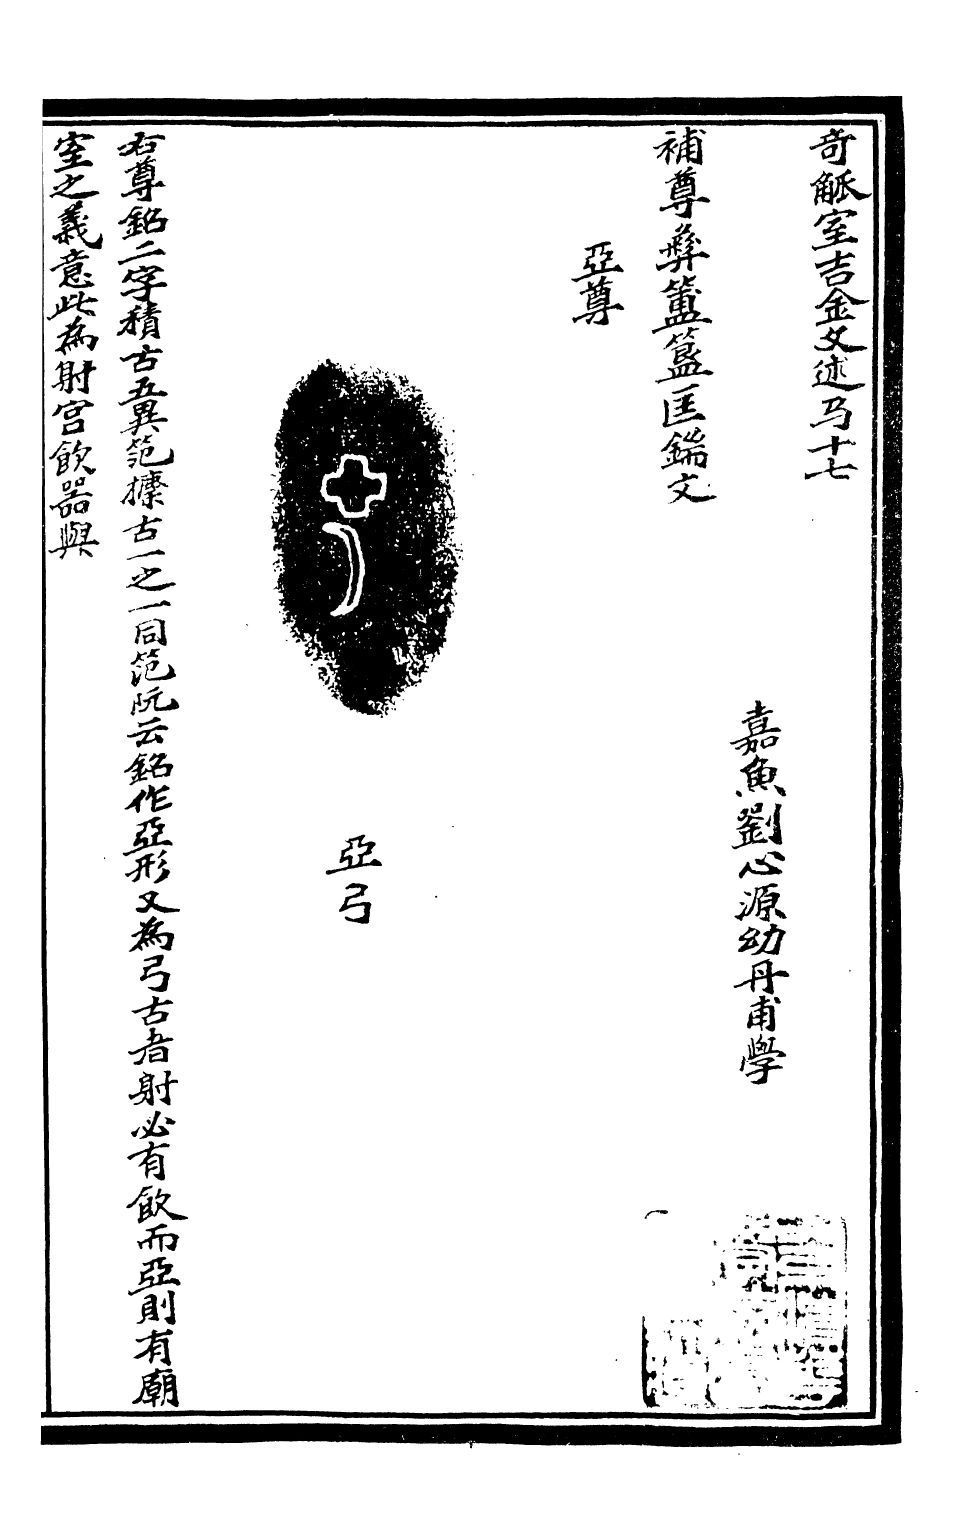 奇觚室吉金文述弓十七
嘉魚劉心源幼丹甫學
補尊彝簠簋匡鍴文
亞尊
亞弓
右尊銘二字積古五異笵攈古一之一同笵阮云銘作亞形又為弓古者射必有飲而亞則有廟
室之義意此為射宮飲器與